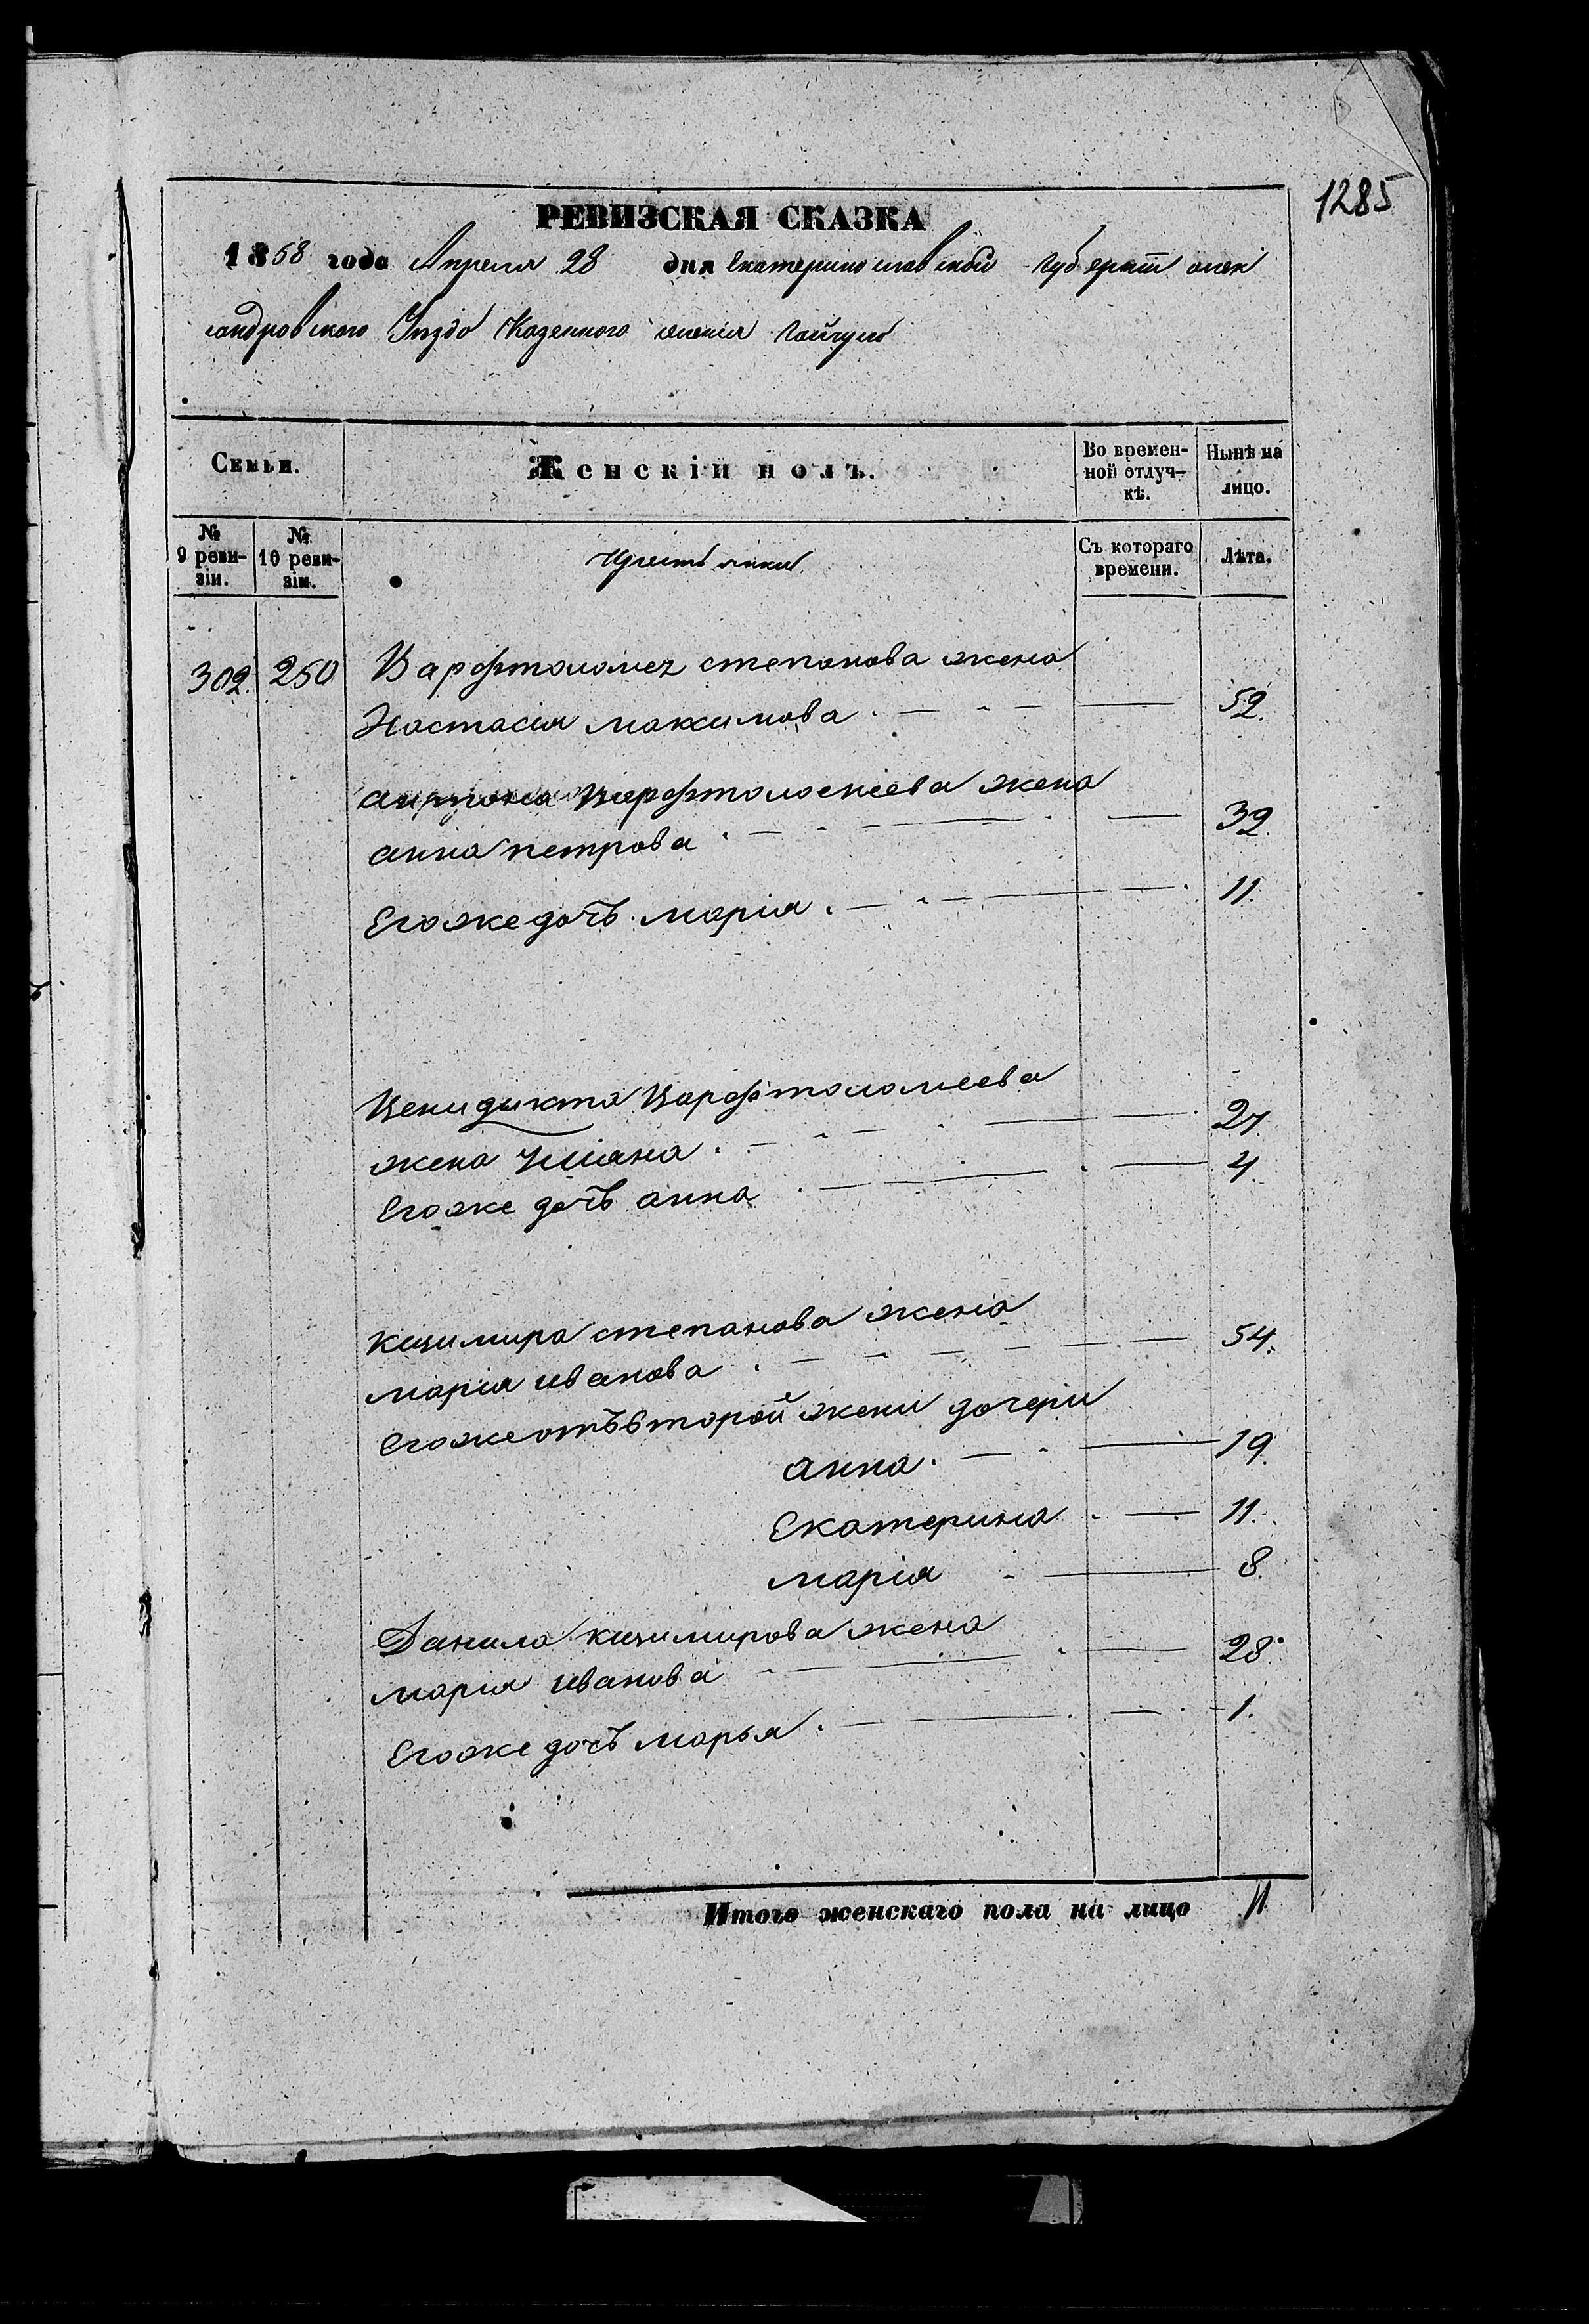 1285
РЕВИЗСКАЯ СКАЗКА
1858 года Апреля 28 дня Екатеринославской губерніи алек
сандровского Уезда Казенного селенія Гайчула
Семьи.
Женскій полъ.
Во времен-
ной отлуч-
кѣ.
Нынѣ на
лицо.
№
9 реви-
зіи.
№
10 реви-
зіи.
Крестьянки
Съ котораго
времени.
Лѣта.
302. 250 Варфтоломея степанова жена
Настасія максимова 52.
Варфтоломеева жена
анна петрова 32.
Егоже дочь марія 11.
Венидикта Варфтоломеева
жена Уліана 27.
Егоже дочь анна 4.
Казимира степанова жена
марія иванова 54.
Егоже отъ второй жени дочери
анна 19.
Екатерина 11.
марія 8.
Данила казимирова жена
марія иванова 28.
Егоже дочь марья 1.
Итого женскаго пола на лицо 11